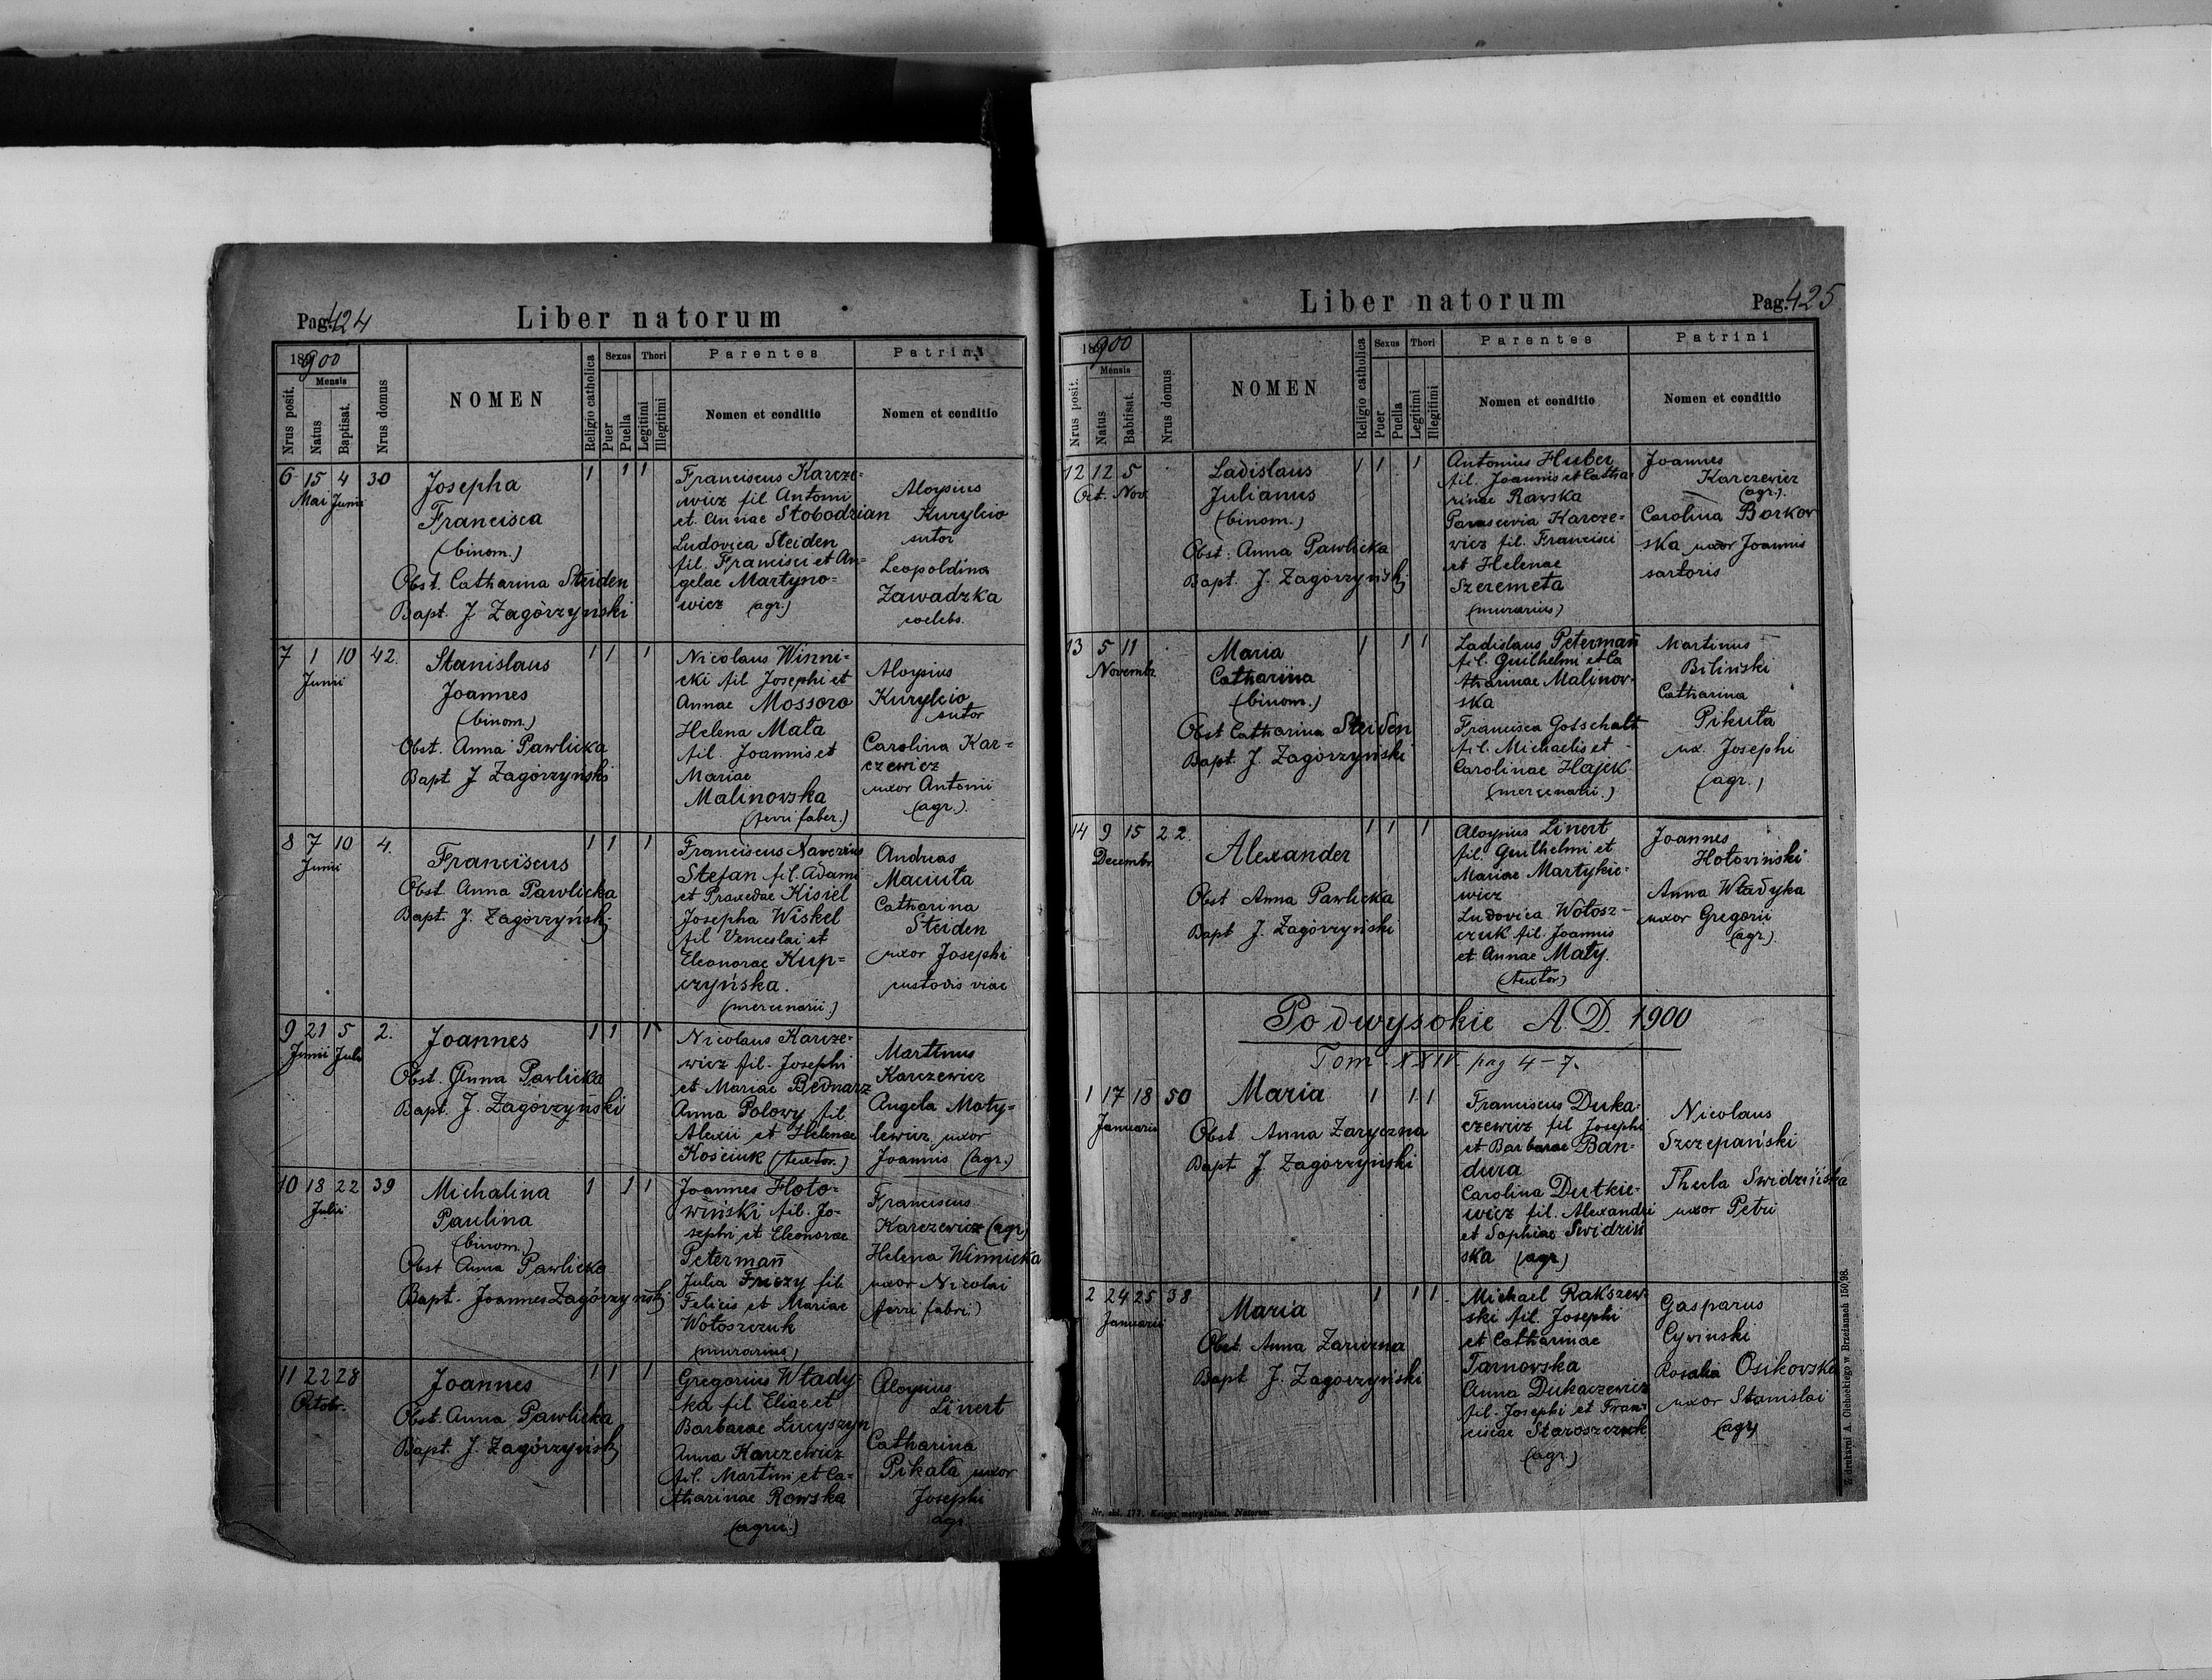 Pag. 424
Liber natorum
18 900
Nrus posit.
Mensis
Natus
Baptisat.
Nrus domus
NOMEN
Religio catholica
Sexus
Puer
Puella
Thori
Legitimi
Illegitimi
Parentes
Nomen et conditio
Patrini
Nomen et conditio
6 15 4 30
Mai Junii
Josepha
Francisca
(binom.)
Obst. Catharina Steiden
Bapt. J Zagórzyński
1 1 1
Franciscus Karcze=
wicz fil Antonii
et. Annae Stobodzian
Ludovica Steiden
fil. Francisci et An-
gelae Martyno-
wicz (agr.)
Aloysius
Kurylcio
sutor
Leopoldina
Zawadzka
coelebs.
7 1 10 42.
Junii
Stanislaus
Joannes
(binom.)
Obst. Anna Pawlicka
Bapt J Zagórzyński
1 1 1
Nicolaus Winni=
cki fil Josephi et
Annae Mossoro
Helena Mała
fil. Joannis et
Mariae
Malinowska
(ferri faber.)
Aloysius
Kurylcio
sutor
Carolina Kar=
czewicz
uxor Antonii
(agr.)
8 7 10 4.
Junii
Franciscus
Obst. Anna Pawlicka
Bapt. J. Zagórzyński
1 1 1
Franciscus Xaverius
Stefan fil. Adami
et Praxedae Kisiel
Josepha Wiskel
fil Venceslai et
Eleonorae Kup=
czyńska.
(mercenarii)
Andreas
Maciuła
Catharina
Steiden
uxor Josephi
custodis viae
9 21 5 2.
Junii Julii
Joannes
Obst. Anna Pawlicka
Bapt. J. Zagórzyński
1 1 1
Nicolaus Karcze-
wicz fil. Josephi
et Mariae Bednarz
Anna Polowy fil
Alexii et Helenae
Kościuk (textor.)
Martinus
Karczewicz
Angela Maty=
lewicz uxor
Joannis (agr.)
10 18 22 39
Julii
Michalina
Paulina
(binom.)
Obst Anna Pawlicka
Bapt. Joannes Zagórzyński
1 1 1
Joannes Hoło=
wiński fil. Jo-
sephi et Eleonorae
Petermañ
Julia Friczy fil
Felicis et Mariae
Wołoszczuk
(murarius)
Franciscus
Karczewicz (agr)
Helena Winnicka
uxor Nicolai
(ferri fabri)
11 22 28
Octobr.
Joannes
Obst. Anna Pawlicka
Bapt. J. Zagórzyński
1 1 1
Gregorius Włady-
ka fil Eliae et
Barbarae Lucyszyn
Anna Karczewicz
fil. Martini et Ca=
tharinae Rowska
(agric.)
Aloysius
Linert
Catharina
Pikała uxor
Josephi
agr.
Pag. 425
Liber natorum
18 900
Nrus posit.
Mensis
Natus
Babtisat.
Nrus domus
NOMEN
Religio catholica
Sexus
Puer
Puella
Thori
Legitimi
Illegitimi
Parentes
Nomen et conditio
Patrini
Nomen et conditio
12 12 5
Oct. Nov.
Ladislaus
Julianus
(binom.)
Obst. Anna Pawlicka
Bapt. J. Zagórzyński
1 1 1
Antonius Huber
fil. Joannis et Catha-
rinae Rawska
Parascevia Karcze-
wicz fil. Francisci
et Helenae
Szeremeta
(murarius)
Joannes
Karczewicz
(agr.)
Carolina Borkow
ska uxor Joannis
sartoris
13 5 11
Novembr.
Maria
Catharina
(binom.)
Obst Catharina Steiden
Bapt. J. Zagórzyński
1 1 1
Ladislaus Petermañ
fil. Guilhelmi et Ca
tharinae Malinow-
ska
Francisca Gotschalt
fil. Michaelis et
Carolinae Hajek
(mercenarii.)
Martinus
Biliński
Catharina
Pikuła
ux. Josephi
(agr.)
14 9 15 22.
Decembr
Alexander
Obst Anna Pawlicka
Bapt J. Zagórzyński
1 1 1
Aloysius Linert
fil. Guilhelmi et
Mariae Martykie-
wicz
Ludovica Wołosz-
czuk fil. Joannis
et Annae Mały.
(textor)
Joannes
Hołowiński
Anna Władyka
uxor Gregorii
(agr.)
Podwysokie A. D. 1900
Tom. XXIV. pag 4-7.
1 17 18 50
Januarii
Maria
Obst Anna Zaryczna
Bapt J. Zagórzyński
1 1 1
Franciscus Duka-
czewicz fil Josephi
et Barbarae Ban-
dura
Carolina Dutkie-
wicz fil. Alexandri
et Sophiae Swidziń
ska (agr)
Nicolaus
Szczepański
Thecla Swidzińska
uxor Petri
2 24 25 38
Januarii
Maria
Obst. Anna Zaryczna
Bapt J. Zagórzyński
1 1 1
Michael Rakszew-
ski fil. Josephi
et Catharinae
Tarnowska
Anna Dukaczewicz
fil. Josephi et Fran-
ciscae Staroszczuk
(agr.)
Gasparus
Cywinski
Rosalia Osikovska
uxor Stanislai
(agr)
Nr. skł. 177. Księga metrykalna. Natorum.
Z drukarni A. Olchockiego w Brzeżanach 150/98.